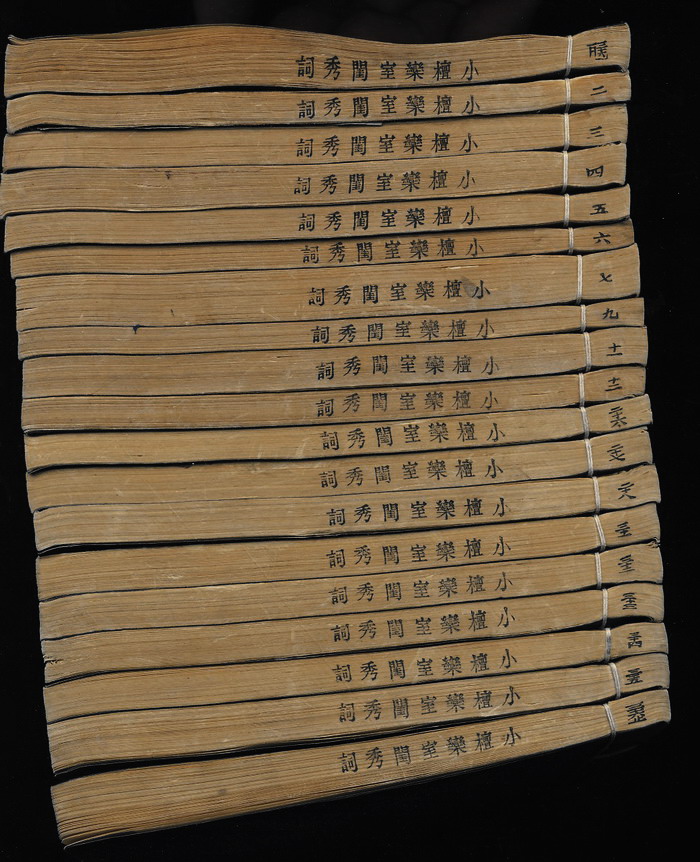 小檀欒室閨秀詞
二 小檀欒室閨秀詞
三 小檀欒室閨秀詞
四 小檀欒室閨秀詞
五 小檀欒室閨秀詞
六 小檀欒室閨秀詞
七 小檀欒室閨秀詞
九 小檀欒室閨秀詞
十一 小檀欒室閨秀詞
十二 小檀欒室閨秀詞
小檀欒室閨秀詞
小檀欒室閨秀詞
小檀欒室閨秀詞
小檀欒室閨秀詞
小檀欒室閨秀詞
小檀欒室閨秀詞
小檀欒室閨秀詞
小檀欒室閨秀詞
小檀欒室閨秀詞